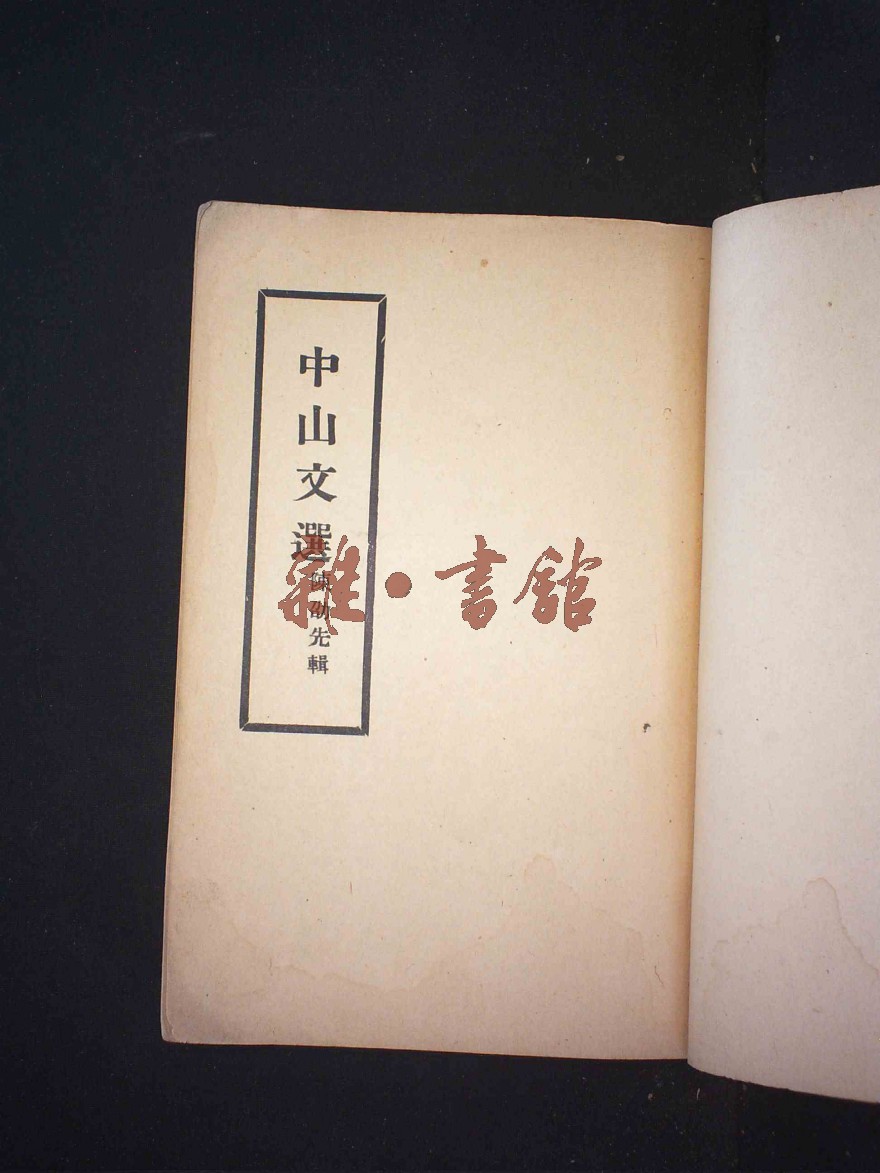 中山文選
陳劭先輯
雜·書館